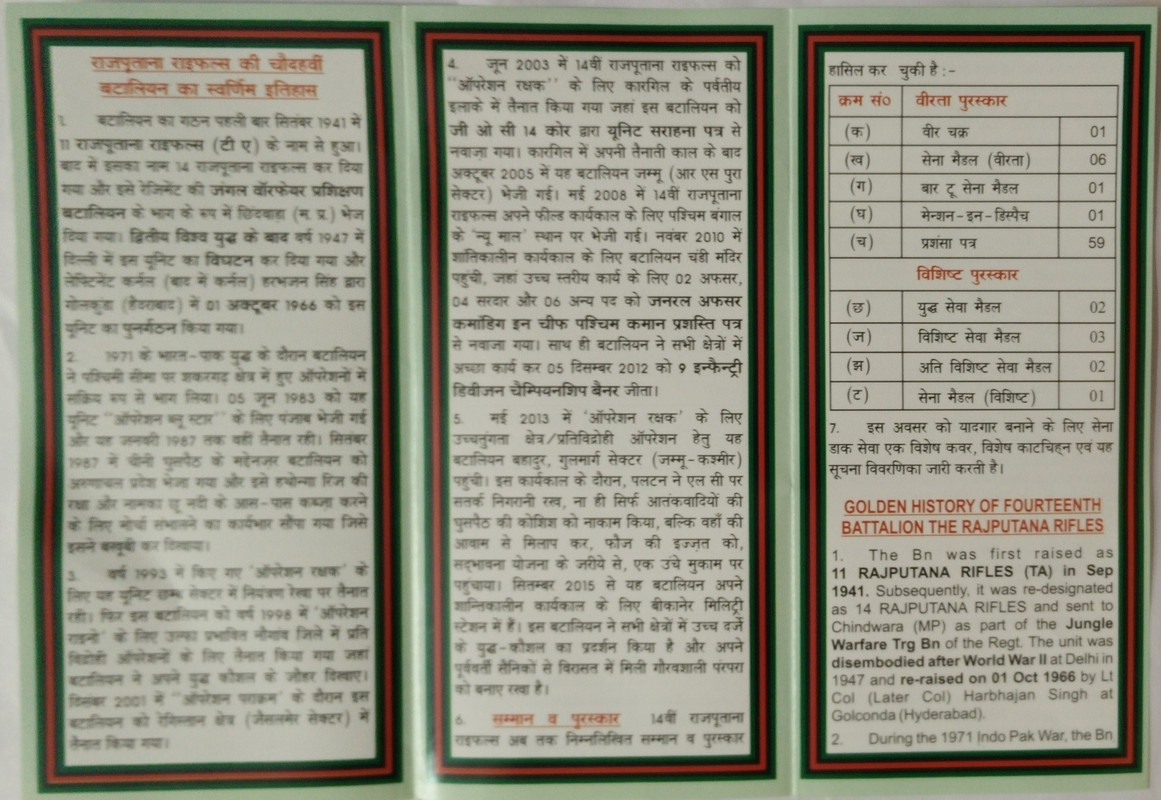 राजपूताना राइफल्स की चौदहवीं
बटालियन का स्वर्णिम इतिहास
1. बटालियन का गठन पहली बार सितंबर 1941 में
11 राजपूताना राइफल्स (टी ए) के नाम से हुआ।
बाद में इसका नाम 14 राजपूताना राइफल्स कर दिया
गया और इसे रेजिमेंट की जंगल वॉरफेयर प्रशिक्षण
बटालियन के भाग के रूप में छिंदवाड़ा (म. प्र.) भेज
दिया गया। द्वितीय विश्व युद्ध के बाद वर्ष 1947 में
दिल्ली में इस यूनिट का विघटन कर दिया गया और
लेफ्टिनेंट कर्नल (बाद में कर्नल) हरभजन सिंह द्वारा
गोलकुंडा (हैदराबाद) में 01 अक्टूबर 1966 को इस
यूनिट का पुनर्गठन किया गया।
2. 1971 के भारत-पाक युद्ध के दौरान बटालियन
ने पश्चिमी सीमा पर शकरगढ़ क्षेत्र में हुए ऑपरेशनों में
सक्रिय रूप से भाग लिया। 05 जून 1983 को यह
यूनिट "ऑपरेशन ब्लू स्टार" के लिए पंजाब भेजी गई
और यह जनवरी 1987 तक वहीं तैनात रही। सितंबर
1987 में चीनी घुसपैठ के मद्देनजर बटालियन को
अरुणाचल प्रदेश भेजा गया और इसे हथोन्गा रिज की
रक्षा और नामका चू नदी के आस-पास कब्जा करने
के लिए मोर्चा संभालने का कार्यभार सौंपा गया जिसे
इसने बखूबी कर दिखाया।
3. वर्ष 1993 में किए गए 'ऑपरेशन रक्षक' के
लिए यह यूनिट छम्ब सेक्टर में नियंत्रण रेखा पर तैनात
रही। फिर इस बटालियन को वर्ष 1998 में 'ऑपरेशन
राइनो' के लिए उल्फा प्रभावित नौगांव जिले में प्रति
विद्रोही ऑपरेशनों के लिए तैनात किया गया जहां
बटालियन ने अपने युद्ध कौशल के जौहर दिखाए।
दिसंबर 2001 में "ऑपरेशन पराक्रम" के दौरान इस
बटालियन को रेगिस्तान क्षेत्र (जैसलमेर सेक्टर) में
तैनात किया गया।
4. जून 2003 में 14वीं राजपूताना राइफल्स को
"ऑपरेशन रक्षक" के लिए कारगिल के पर्वतीय
इलाके में तैनात किया गया जहां इस बटालियन को
जी ओ सी 14 कोर द्वारा यूनिट सराहना पत्र से
नवाज़ा गया। कारगिल में अपनी तैनाती काल के बाद
अक्टूबर 2005 में यह बटालियन जम्मू (आर एस पुरा
सेक्टर) भेजी गई। मई 2008 में 14वीं राजपूताना
राइफल्स अपने फील्ड कार्यकाल के लिए पश्चिम बंगाल
के 'न्यू माल' स्थान पर भेजी गई। नवंबर 2010 में
शांतिकालीन कार्यकाल के लिए बटालियन चंडी मंदिर
पहुंची, जहां उच्च स्तरीय कार्य के लिए 02 अफसर,
04 सरदार और 06 अन्य पद को जनरल अफसर
कमांडिग इन चीफ पश्चिम कमान प्रशस्ति पत्र
से नवाजा गया। साथ ही बटालियन ने सभी क्षेत्रों में
अच्छा कार्य कर 05 दिसम्बर 2012 को 9 इन्फैन्ट्री
डिवीजन चैम्पियनशिप बैनर जीता।
5. मई 2013 में 'ऑपरेशन रक्षक' के लिए
उच्चतुंगता क्षेत्र/प्रतिविद्रोही ऑपरेशन हेतु यह
बटालियन बहादुर, गुलमार्ग सेक्टर (जम्मू-कश्मीर)
पहुंची। इस कार्यकाल के दौरान, पलटन ने एल सी पर
सतर्क निगरानी रख, ना ही सिर्फ आतंकवादियों की
घुसपैठ की कोशिश को नाकाम किया, बल्कि वहाँ की
आवाम से मिलाप कर, फौज की इज्ज़त को,
सद्भावना योजना के जरीये से, एक उंचे मुकाम पर
पहुचाया। सितम्बर 2015 से यह बटालियन अपने
शान्तिकालीन कार्यकाल के लिए बीकानेर मिलिट्री
स्टेशन में है। इस बटालियन ने सभी क्षेत्रों में उच्च दर्जे
के युद्ध-कौशल का प्रदर्शन किया है और अपने
पूर्ववर्ती सैनिकों से विरासत में मिली गौरवशाली परंपरा
को बनाए रखा है।
6. सम्मान व पुरस्कार 14वीं राजपूताना
राइफल्स अब तक निम्नलिखित सम्मान व पुरस्कार
हासिल कर चुकी है:-
क्रम सं० वीरता पुरस्कार
(क) वीर चक्र 01
(ख) सेना मैडल (वीरता) 06
(ग) बार टू सेना मैडल 01
(घ) मेन्शन-इन-डिस्पैच 01
(च) प्रशंसा पत्र 59
विशिष्ट पुरस्कार
(छ) युद्ध सेवा मैडल 02
(ज) विशिष्ट सेवा मैडल 03
(झ) अति विशिष्ट सेवा मैडल 02
(ट) सेना मैडल (विशिष्ट) 01
7. इस अवसर को यादगार बनाने के लिए सेना
डाक सेवा एक विशेष कवर, विशेष काटचिह्न एवं यह
सूचना विवरणिका जारी करती है।
GOLDEN HISTORY OF FOURTEENTH
BATTALION THE RAJPUTANA RIFLES
1. The Bn was first raised as
11 RAJPUTANA RIFLES (TA) in Sep
1941. Subsequently, it was re-designated
as 14 RAJPUTANA RIFLES and sent to
Chindwara (MP) as part of the Jungle
Warfare Trg Bn of the Regt. The unit was
disembodied after World War II at Delhi in
1947 and re-raised on 01 Oct 1966 by Lt
Col (Later Col) Harbhajan Singh at
Golconda (Hyderabad).
2. During the 1971 Indo Pak War, the Bn